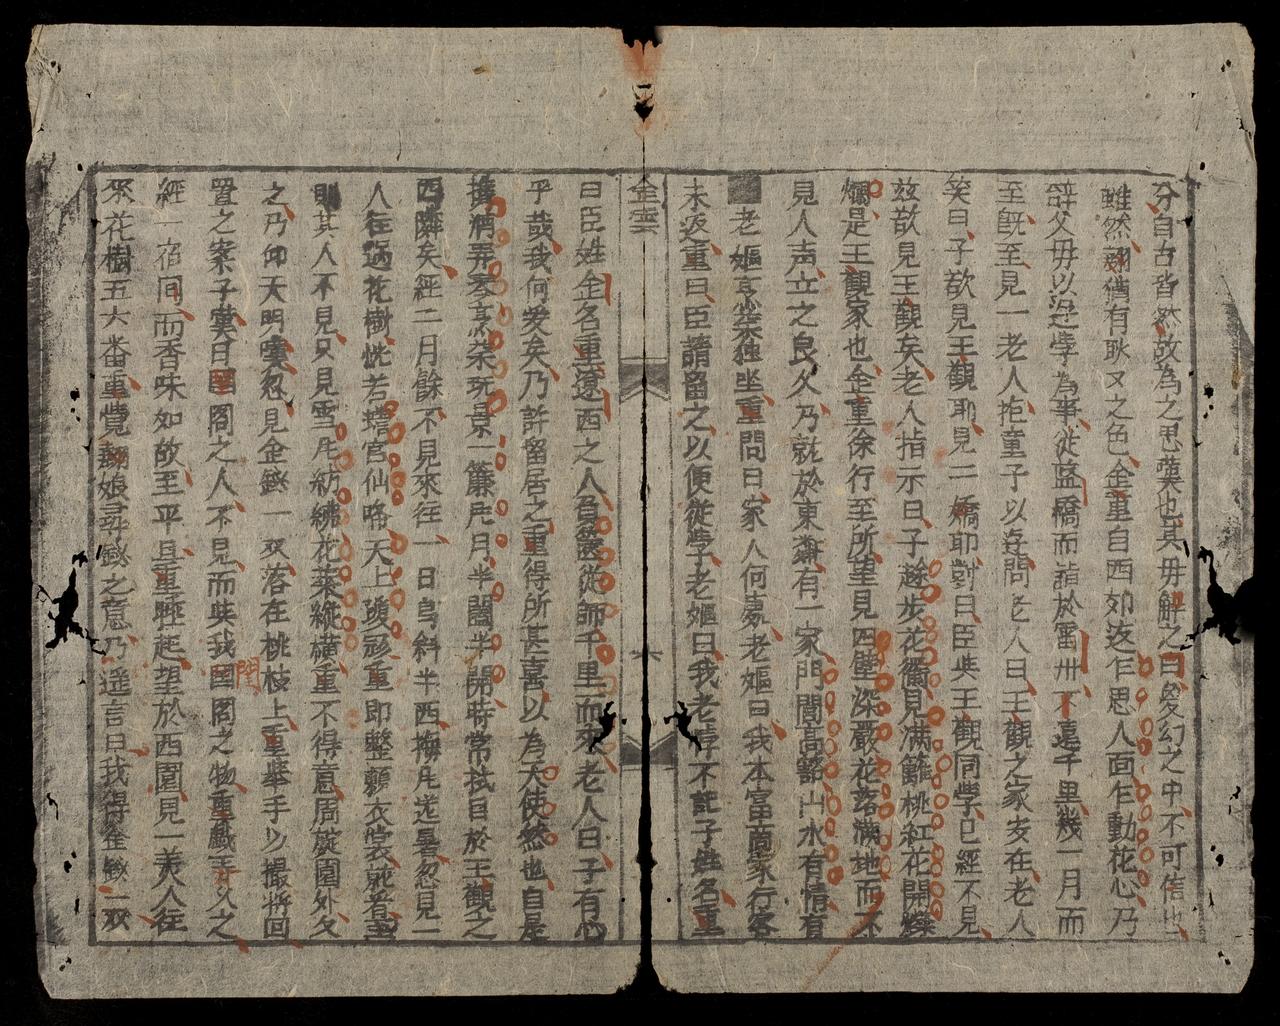 分自古皆然故為之思䕫也其毋解之曰変幻之中不可信也
雖然翊俏有耿又之色金重自西如返乍思人面乍動花心乃
辝父毋以逰學為事從藍橋而䠖於霅卅不遠千里幾一月而
至旣至見一老人拒童子以迯問老人曰王觀之家安在老人
笑曰子欲見王觀耶見二嬌耶對曰臣與王觀同學已經不見
兹欲見王觀矣老人指示曰子趂步花衢見滿籬桃紅花開爍
爛是王觀家也金重徐行至所望見四壁深嚴花落滿地而不
見人声立之良久乃就於東鄰有一家門閭高豁山水有情有
老嫗烹茶独坐重問曰家人何處老嫗曰我本富商家行客
未返重曰臣請留之以便從學老嫗曰我老悖不記子姓名重
金雲
六
曰臣姓金名重遼西之人負篋從師千里而來老人曰子有心
乎哉我何爱矣乃許留居之重得所甚喜以為天使然也自是
携酒弄琴烹茶玩景一簾凨月半闇半開時常拭目於王觀之
西隣矣經二月餘不見來徃一日烏斜半西梅凨送暑忽見一
人徃過花樹恍若蟾宫仙咯天上瓊珍重即整顏衣裳就者重
則其人不見只見雪凨紡繞花葉縱横重不得意周旋園外久
之乃仰天明嘆忽見金釵一双落在桃枝上重举手少撮將回
置之案子嘆曰閨閣之人不見而與我閨閣之物重戱弄久之
閨
經一宿间而香味如故至平旦重睡起望於西園見一美人徃
來花樹五六番重覺翻娘尋釵之意乃遥言曰我得金釵一双